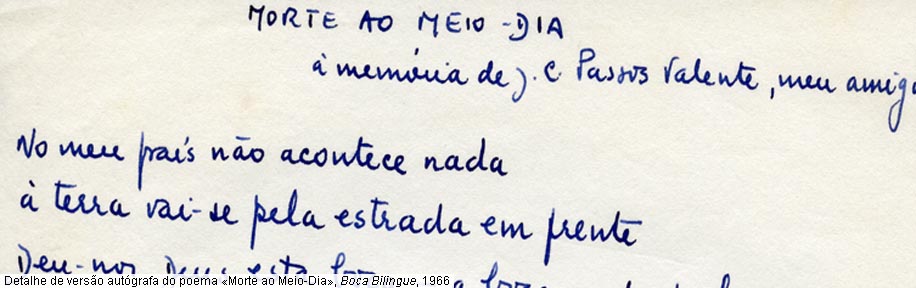 MORTE AO MEIO-DIA
à memória de J. C. Passos Valente, meu amigo
No meu país não acontece nada
à terra vai-se pela estrada em frente
Deu-nos Deus esta
Detalhe de versão autógrafa do poema «Morte ao Meio-Dia», Boca Bilingue, 1966